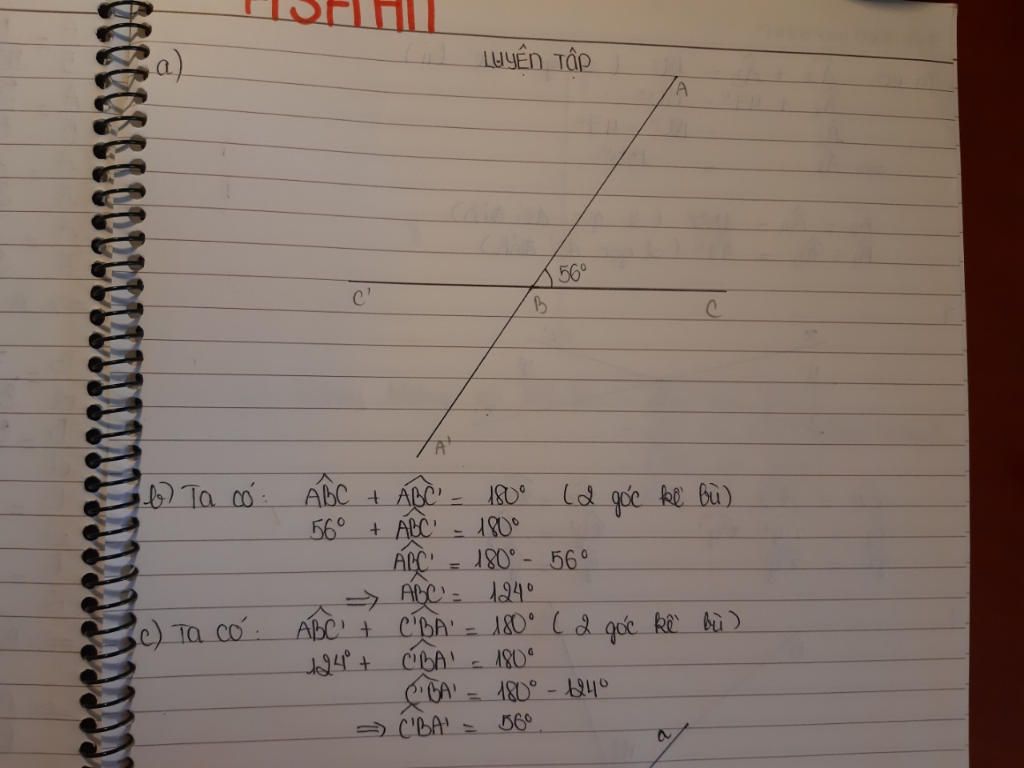 LUYỆN TẬP
a)
A
56°
C'
B
C
A'
b) Ta có: ABC + ABC' = 180° (2 góc kề bù)
56° + ABC' = 180°
ABC' = 180° - 56°
=> ABC' = 124°
c) Ta có: ABC' + C'BA' = 180° (2 góc kề bù)
124° + C'BA' = 180°
C'BA' = 180° - 124°
=> C'BA' = 56°.
a